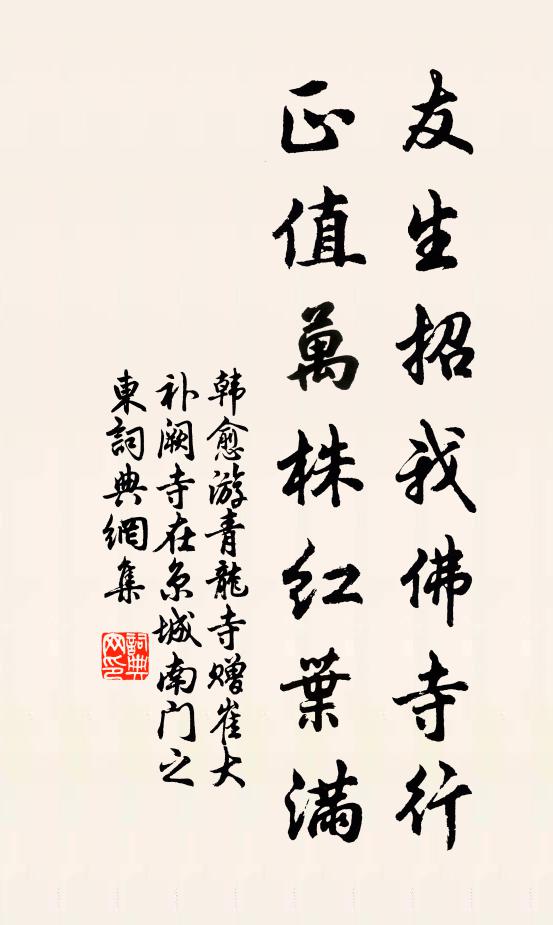 友生招我佛寺行
正值萬株红葉满
韩愈游青龍寺赠崔大
补阙寺在京城南门之
東詞典網集
詞典